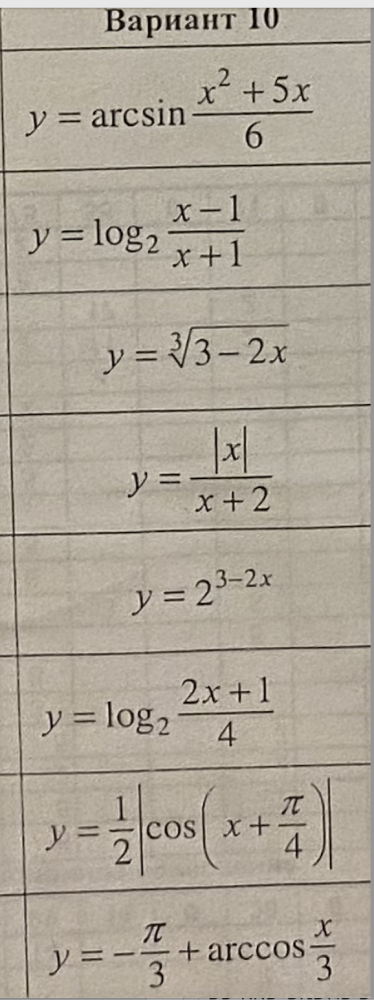 Вариант 10
y = arcsin (x² + 5x)/6
y = log₂ (x − 1)/(x + 1)
y = ∛(3 − 2x)
y = |x|/(x + 2)
y = 2^(3−2x)
y = log₂ (2x + 1)/4
y = 1/2 |cos(x + π/4)|
y = −π/3 + arccos x/3